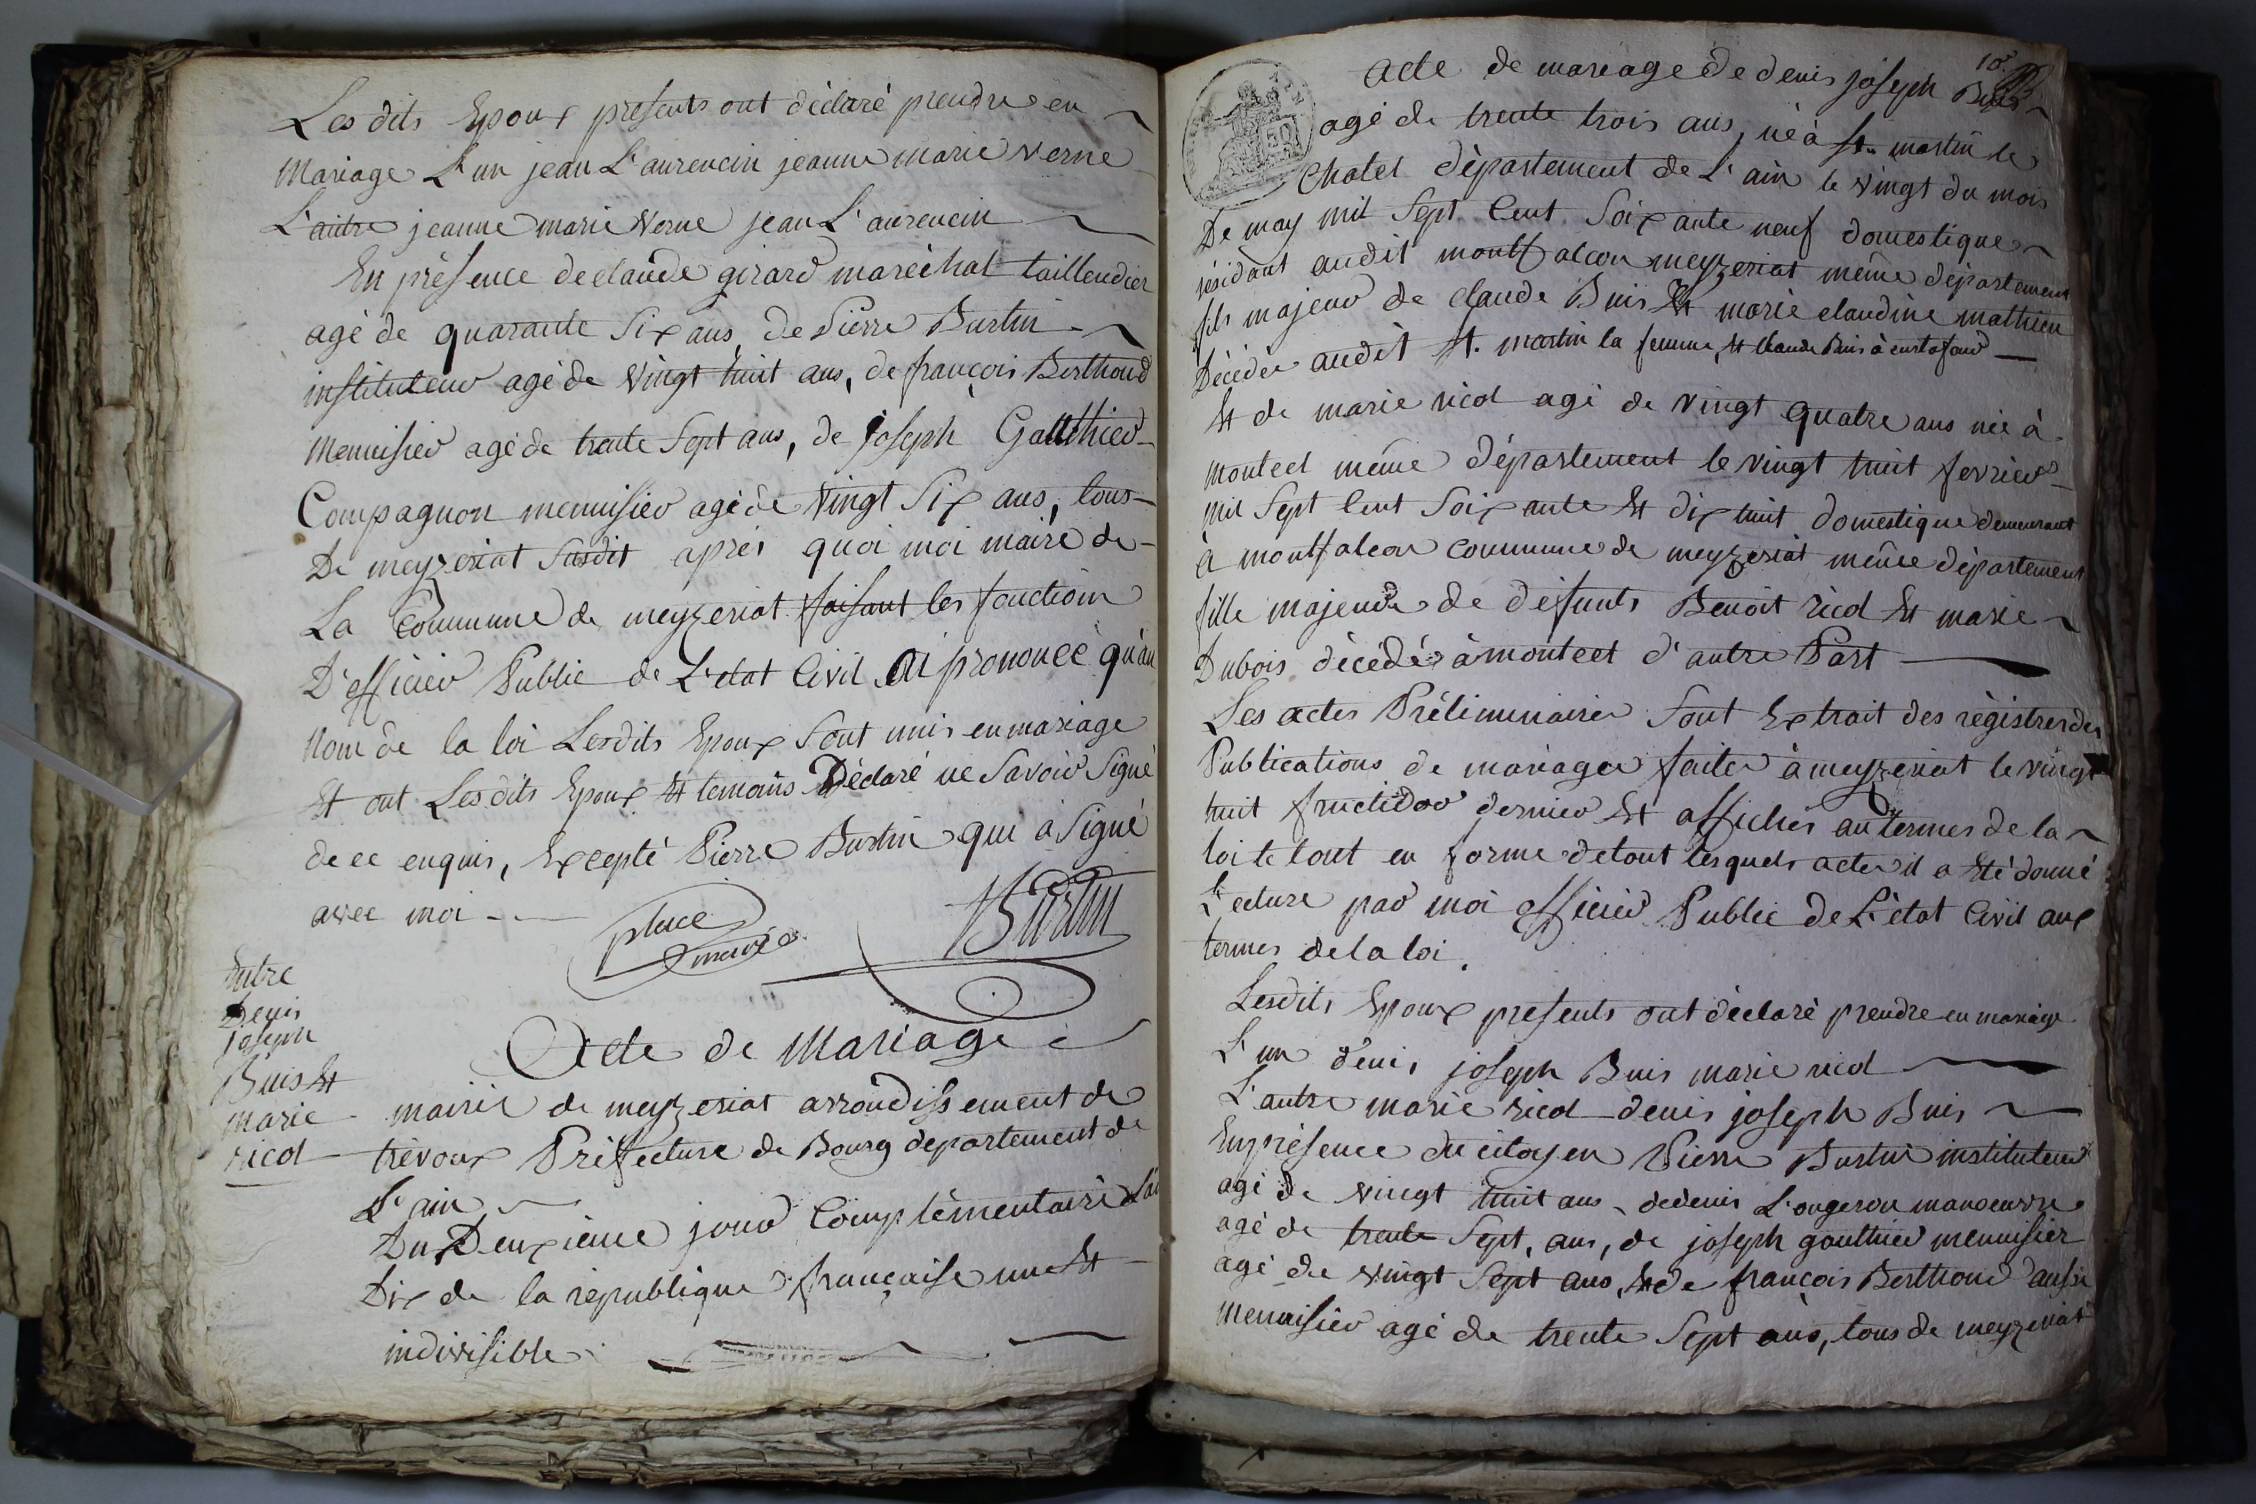 Les dits Epoux presents ont déclaré prendre en
Mariage L'un jean L'aurencin jeanne marie verne
L'autre jeanne marie verne jean L'aurencin
En présence de claude girard maréchal taillendier
agé de quarante Six ans, de Pierre Burtin
instituteur agé de vingt huit ans, de françois Berthoud
Menuisier agé de trente Sept ans, de joseph Gautthier
Compagnon menuisier agé de vingt Six ans, tous
De meyzeriat Susdit après quoi moi maire de
La Commune de meyzeriat faisant les fonctions
D'officier Public de L'etat Civil, Ai prononcé qu'au
Nom de la loi Lesdits Epoux Sont unis en mariage
Et ont Les dits Epoux Et temoins Déclaré ne Savoir Signé
de ce enquis, Excepté Pierre Burtin qui à Signé
avec moi
place
maire
Burtin
Entre
Denis
joseph
Buis Et
marie
ricol
Acte de Mariage
mairie de meyzeriat arrondissement de
trévoux Préfecture de Bourg département de
L'ain
Du Deuxième jour Complémentaire L'an
Dix de la république française une Et
indivisible
10
Acte de mariage de denis joseph Buis
agé de trente trois ans, né à St. martin le
Chatel département de L'ain le vingt du mois
De may mil Sept Cent Soixante neuf domestique
résidant audit montfalcon meyzeriat même département
fils majeur de claude Buis Et marie claudine mathieu
Décédée audit St. martin la femme, Et Claude Buis à
Et de marie ricol agé de vingt quatre ans née à
montcet même département le vingt huit fevrier
Mil Sept Cent Soixante Et dix huit domestique demeurant
à montfalcon commune de meyzeriat même département
fille majeure de défunts Benoit ricol Et marie
Dubois décédés à montcet d'autre Part
Les actes Préliminaires Sont Extrait des régistres des
Publications de mariages faites à meyzeriat le vingt
huit fructidor dernier Et affichés au termes de la
loi le tout en forme de tout lesquels actes il a Eté donné
Lecture par moi officier Public de L'état Civil aux
termes de la loi.
Lesdits Epoux presents ont déclaré prendre en mariage
L'un denis joseph Buis marie ricol
L'autre marie ricol denis joseph Buis
En présence du citoyen Pierre Burtin instituteur
agé de vingt huit ans, de denis L'ongeron manoeuvre
agé de trente Sept, ans, de joseph gouthier menuisier
agé de vingt Sept ans, Et de françois Berthoud aussi
Menuisier agé de trente Sept ans, tous de meyzeriat